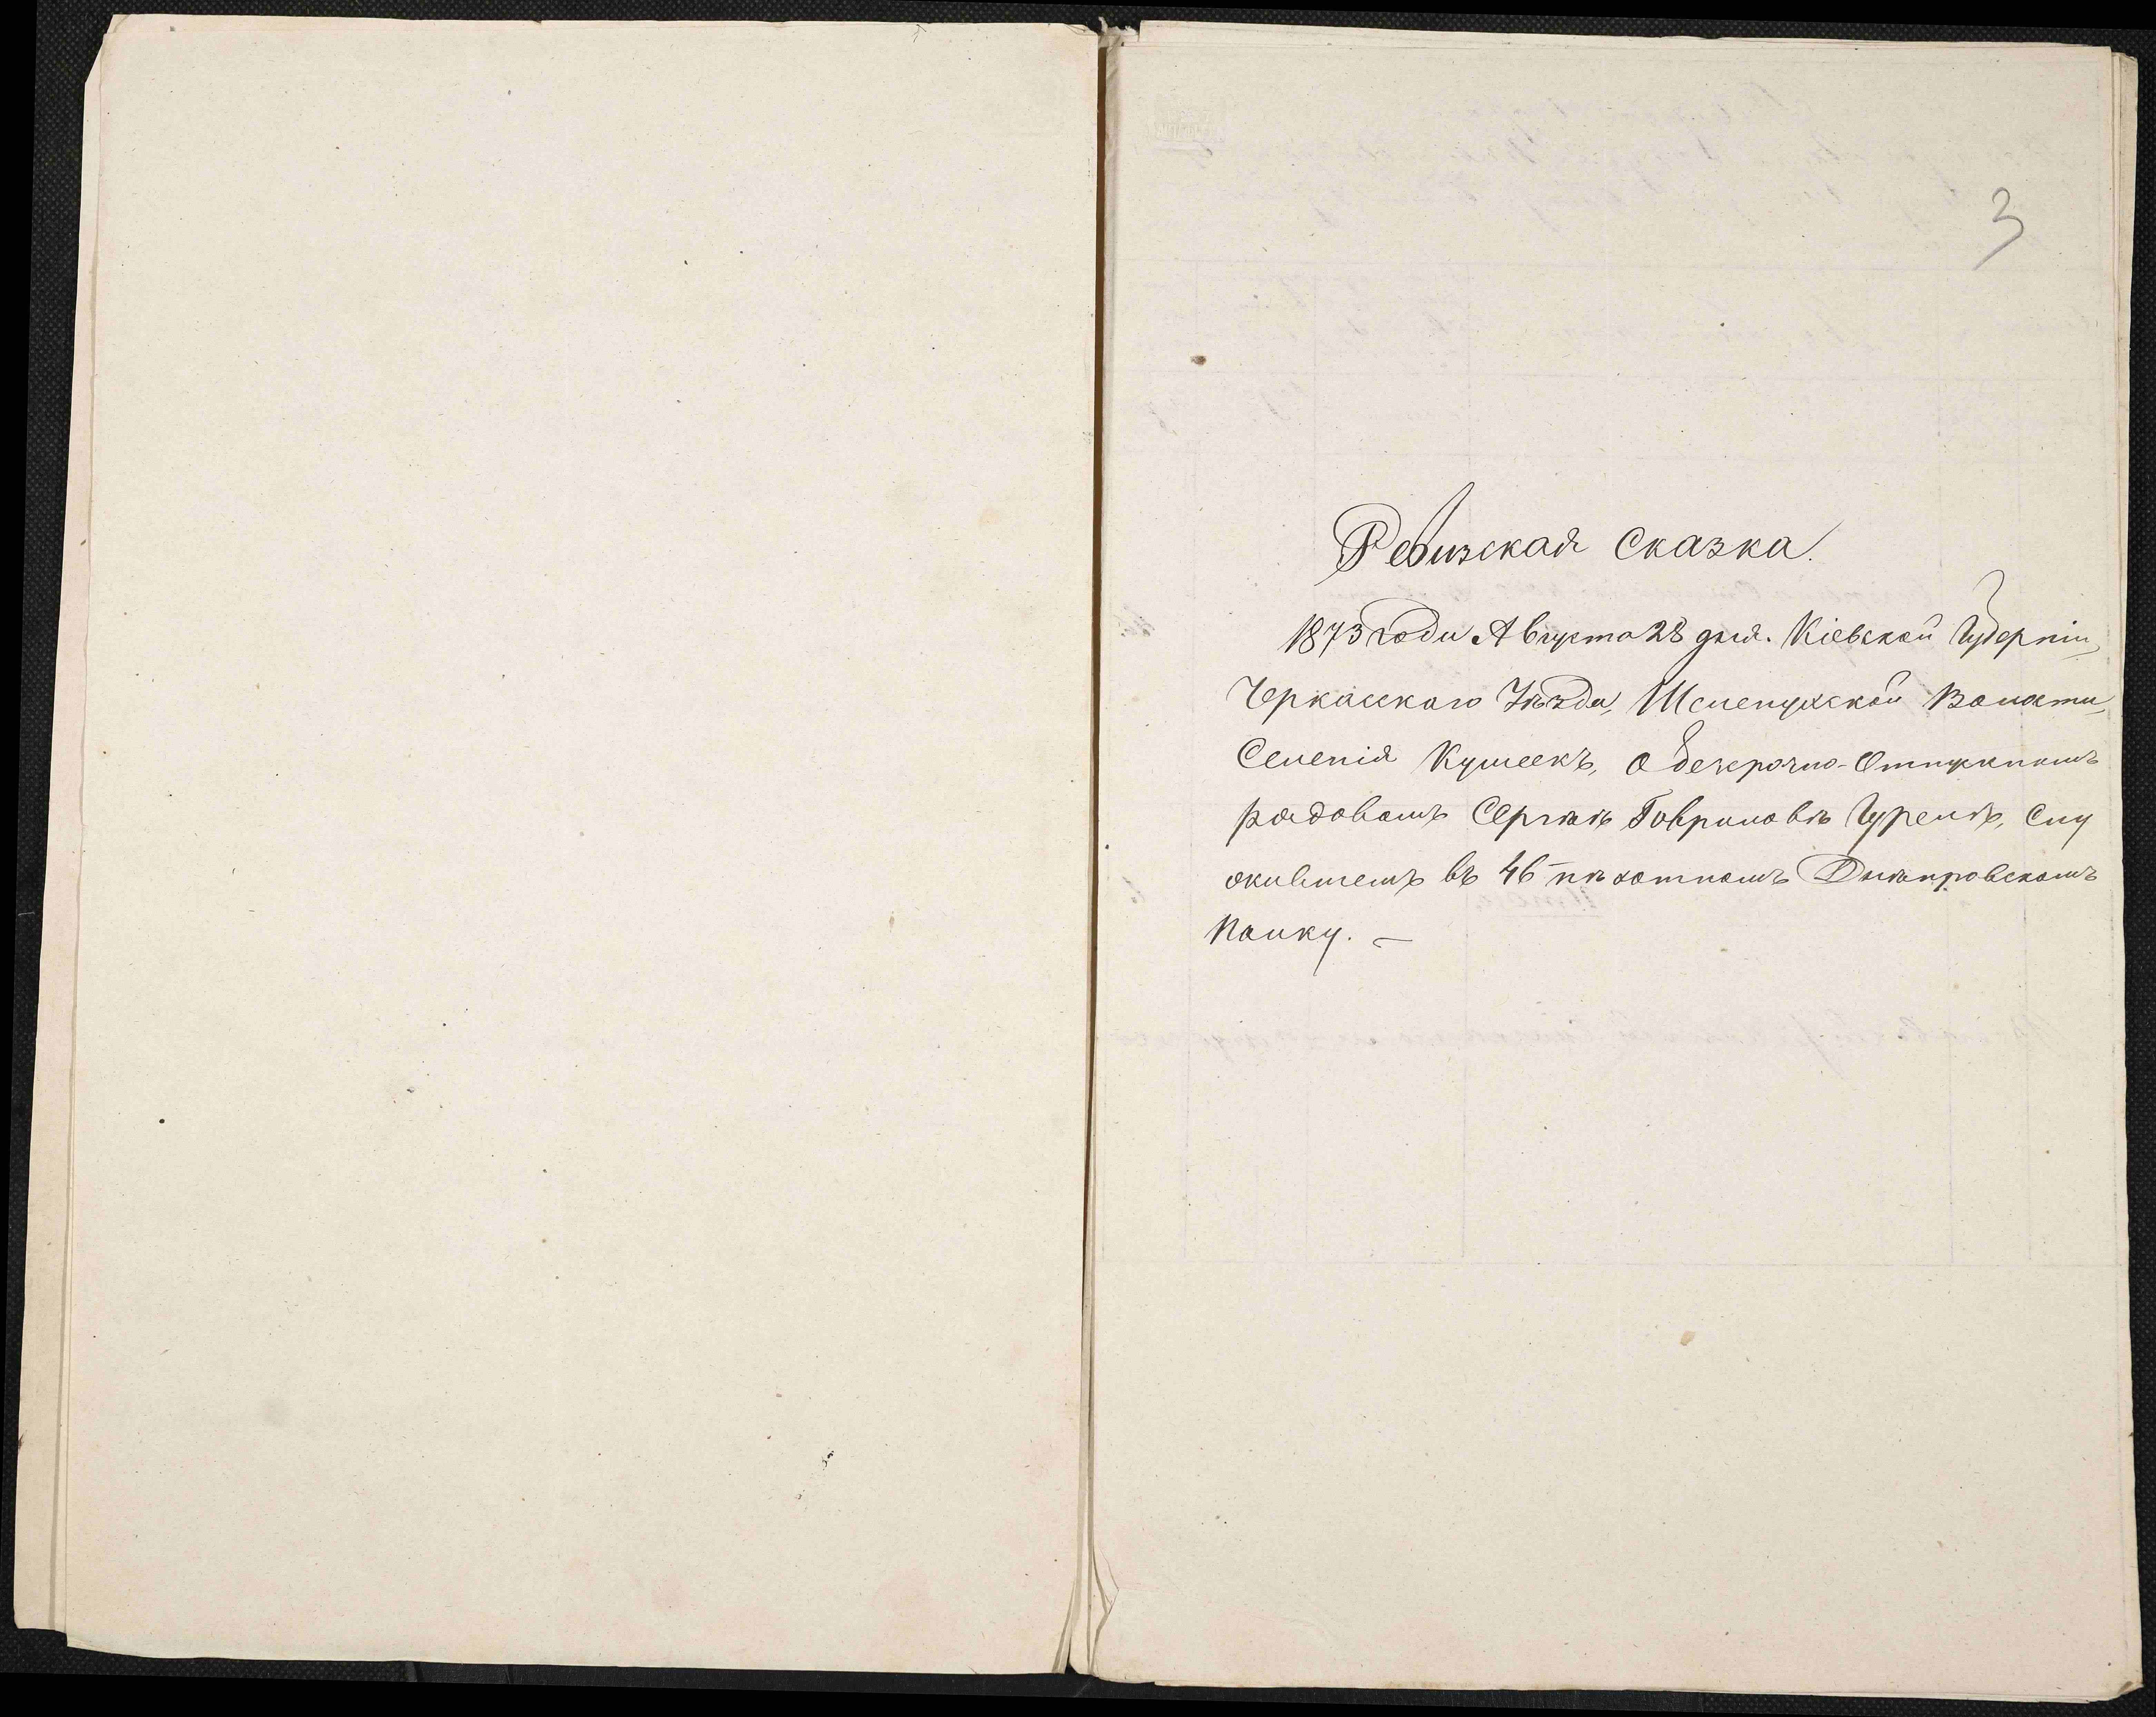 3
Ревизская Сказка.
1873 года Августа 28 дня. Кіевской Губерніи,
Черкасскаго Уѣзда, Шелепухской Волости,
Селенія Кумеекъ, о безсрочно-Отпускномъ
рядовомъ Сергѣѣ Гавриловѣ Гурелѣ, Слу
жившемъ въ 46 пѣхотномъ Днѣпровскомъ
Полку. —